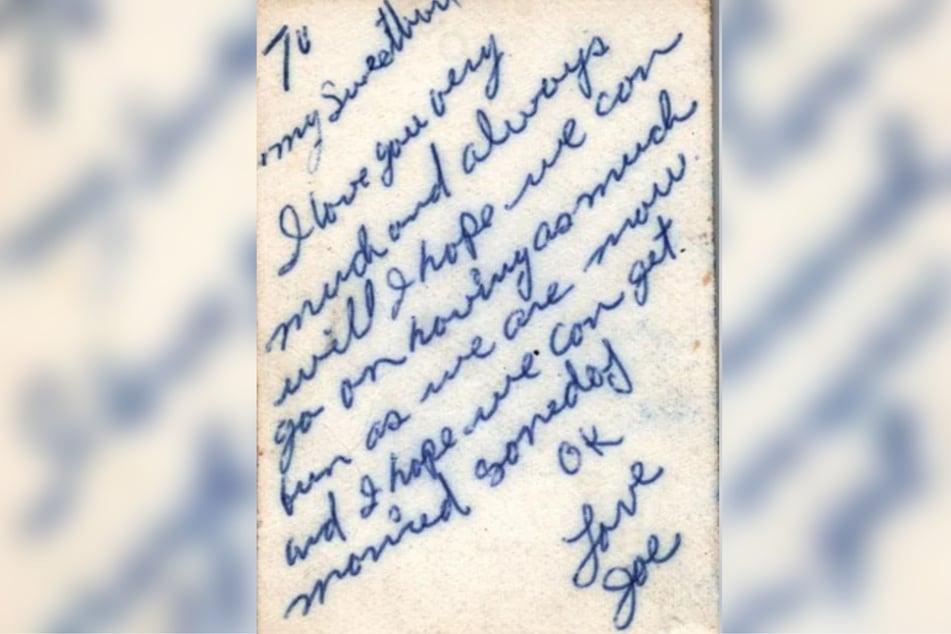 To
my Sweethart
I love you very
much and always
will I hope we can
go on having as much
fun as we are now
and I hope we can get
married someday
OK
Love
Joe